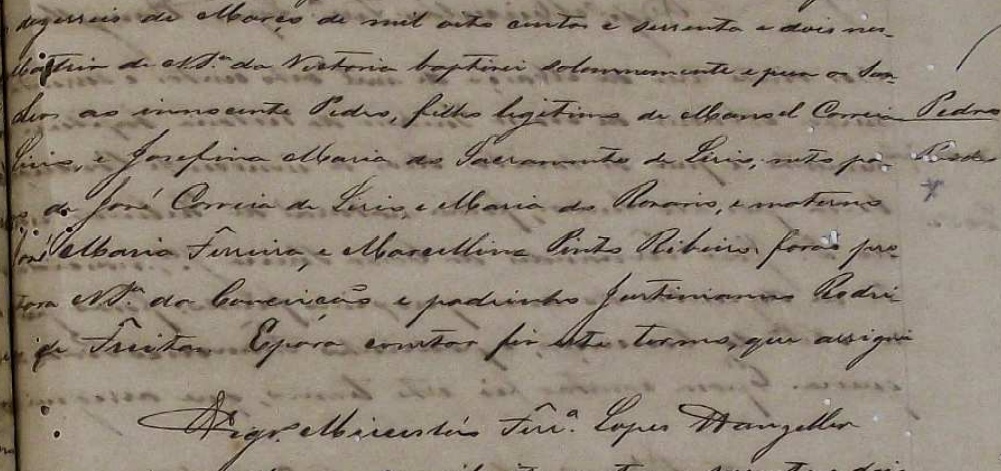 dezesseis de Março de mil oito centos e sessenta e dois nes-
Matriz de N. Sra. da Victoria baptizei solemnemente e puz os San-
leos ao innocente Pedro, filho legitimo de Manoel Correia Pedro
Liris, e Josefina Maria do Sacramento de Liris, neto pa-
de José Correia de Liris, e Maria do Rosario, e materno
José Maria Ferreira, e Marcellina Pinto Ribeiro. foraõ pro-
tora N. Sra. da Conceiçaõ e padrinho Justiniano Rodri-
de Freitas. E para constar fiz este termo, que assignei
Vigr. Mirceslás Ferr.ª Lopes Wanzeller